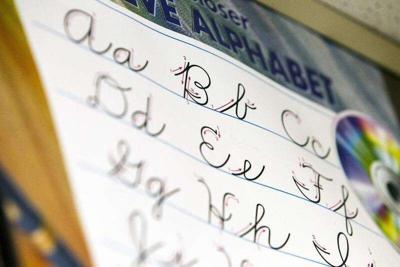 ALPHABET
Aa Bb Cc
Dd Ee Ff
Gg Hh